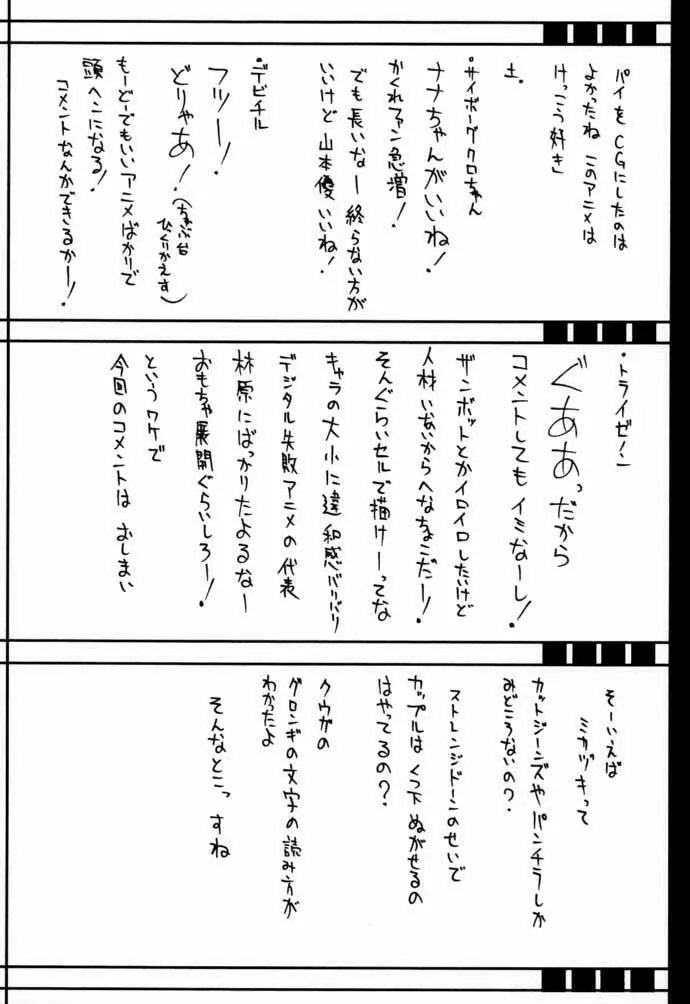 パイを CGにしたのは
よかったね このアニメは
けっこう好き」
土.
・サイボーグクロちゃん
ナナちゃんがいいね!
かくれファン急増!
でも長いなー 終らない方が
いいけど 山本優 いいね!
・デビチル
フッー!
どりゃあ!(ちゃぶ台
ひくりかえす)
もーどーでもいいアニメばかりで
頭ヘンになる!
コメントなんかできるかー!
・トライゼノン
ぐああっだから
コメントしても イミなーし!
ザンボットとかイロイロしたいけど
人材いないからへなちょこだー!
そんぐらいセルで描けーってな
キャラの大小に違和感バリバリ
デジタル失敗アニメの代表
林原にばっかりたよるなー
おもちゃ展開ぐらいしろー!
というワケで
今回のコメントは おしまい
そーいえば
ミカヅキって
カットジーンズや パンチラしか
みどころないの?
ストレンジドーンのせいで
カップルは くつ下 ぬがせるの
はやってるの?
クウガの
グロンギの文字の読み方が
わかったよ
そんなとこっ すね